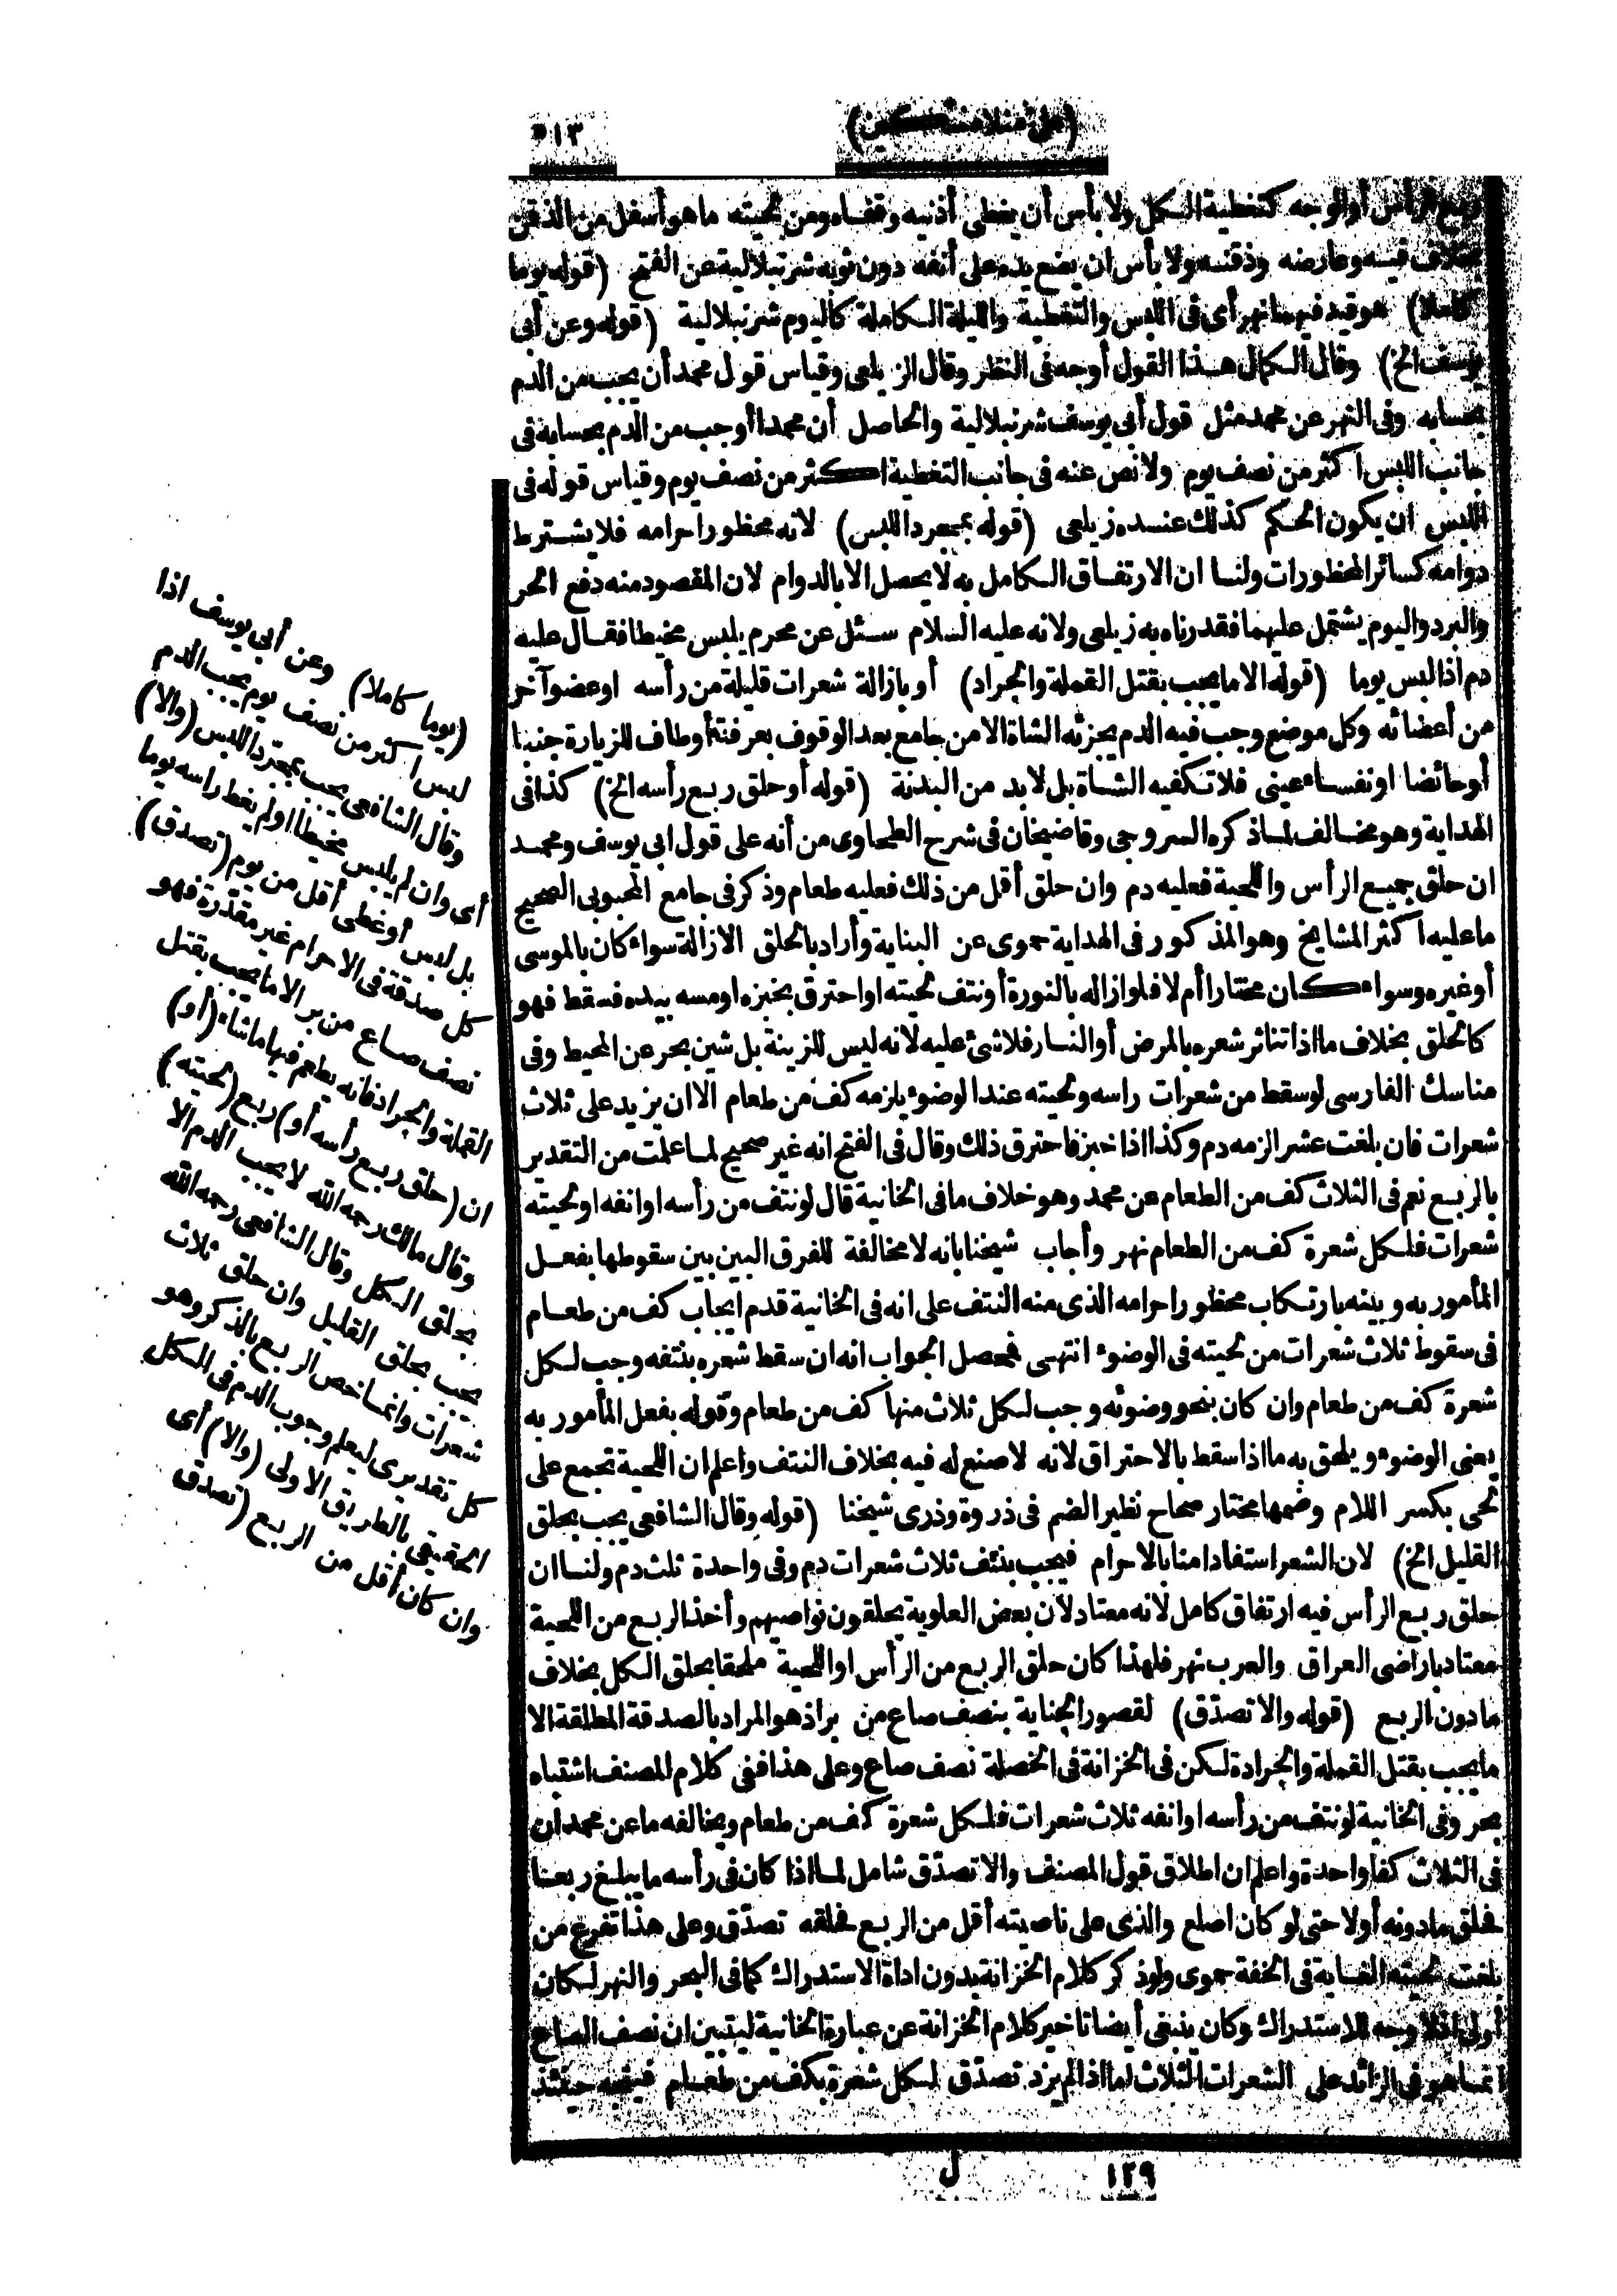 (على منلا مسكين)
٥١٣
وربع الرأس أو الوجه كتغطية الكل ولا بأس أن يغطى أذنيه وقفاه ومن لحيته ما هو أسفل من الذقن
بخلاف فيه وعارضه وذقنه ولا بأس ان يضع يده على أنفه دون ثوبه شرنبلالية عن الفتح (قوله يوما
كاملا) هو قيد فيهما نهر أى فى اللبس والتغطية والليلة الكاملة كاليوم شرنبلالية (قوله وعن أبى
يوسف الخ) وقال الكمال هذا القول أوجه فى النظر وقال الزيلعى وقياس قول محمد أن يجب من الدم
بحسابه وفى النهر عن محمد مثل قول أبى يوسف شرنبلالية والحاصل أن محمدا أوجب من الدم بحسابه فى
جانب اللبس اكثر من نصف يوم ولا نص عنه فى جانب التغطية اكثر من نصف يوم وقياس قوله فى
اللبس ان يكون الحكم كذلك عنده زيلعى (قوله بمجرد اللبس) لانه محظور احرامه فلا يشترط
دوامه كسائر المحظورات ولنا ان الارتفاق الكامل به لا يحصل الا بالدوام لان المقصود منه دفع الحر
والبرد واليوم يشتمل عليهما فقدرناه به زيلعى ولانه عليه السلام سئل عن محرم يلبس مخيطا فقال عليه
دم اذا لبس يوما (قوله الا ما يجب بقتل القملة والجراد) أو بازالة شعرات قليلة من رأسه او عضو آخر
من أعضائه وكل موضع وجب فيه الدم يجزئه الشاة الا من جامع بعد الوقوف بعرفة أو طاف للزيارة جنبا
أو حائضا او نفساء عينى فلا تكفيه الشاة بل لا بد من البدنة (قوله أو حلق ربع رأسه الخ) كذا فى
الهداية وهو مخالف لما ذكره السروجى وقاضيخان فى شرح الطحاوى من أنه على قول ابى يوسف ومحمد
ان حلق جميع الرأس واللحية فعليه دم وان حلق أقل من ذلك فعليه طعام وذكر فى جامع المحبوبى الصحيح
ما عليه اكثر المشايخ وهو المذكور فى الهداية حموى عن البناية وأراد بالحلق الازالة سواء كان بالموسى
أو غيره وسواء كان مختارا أم لا فلو ازاله بالنورة أو نتف لحيته او احترق بخبزه او مسه بيده فسقط فهو
كالحلق بخلاف ما اذا تناثر شعره بالمرض أو النار فلا شئ عليه لانه ليس للزينة بل شين بحر عن المحيط وفى
مناسك الفارسى لو سقط من شعرات راسه ولحيته عند الوضوء يلزمه كف من طعام الا ان يزيد على ثلاث
شعرات فان بلغت عشرا لزمه دم وكذا اذا خبز فاحترق ذلك وقال فى الفتح انه غير صحيح لما علمت من التقدير
بالربع نعم فى الثلاث كف من الطعام عن محمد وهو خلاف ما فى الخانية قال لو نتف من رأسه او انفه او لحيته
شعرات فلكل شعرة كف من الطعام نهر وأجاب شيخنا بانه لا مخالفة للفرق البين بين سقوطها بفعل
المأمور به وبينه بارتكاب محظور احرامه الذى منه النتف على انه فى الخانية قدم ايجاب كف من طعام
فى سقوط ثلاث شعرات من لحيته فى الوضوء انتهى فحصل الجواب انه ان سقط شعره بنتفه وجب لكل
شعرة كف من طعام وان كان بنحو وضوئه وجب لكل ثلاث منها كف من طعام وقوله بفعل المأمور به
يعنى الوضوء ويلحق به ما اذا سقط بالاحتراق لانه لا صنع له فيه بخلاف النتف واعلم ان اللحية تجمع على
لحى بكسر اللام وضمها مختار صحاح نظير الضم فى ذروة وذرى شيخنا (قوله وقال الشافعى يجب بحلق
القليل الخ) لان الشعر استفاد امنا بالاحرام فيجب بنتف ثلاث شعرات دم وفى واحدة ثلث دم ولنا ان
حلق ربع الرأس فيه ارتفاق كامل لانه معتاد لان بعض العلوية يحلقون نواصيهم وأخذ الربع من اللحية
معتاد باراضى العراق والعرب نهر فلهذا كان حلق الربع من الرأس او اللحية ملحقا بحلق الكل بخلاف
ما دون الربع (قوله والا تصدّق) لقصور الجناية بنصف صاع من بر اذ هو المراد بالصدقة المطلقة الا
ما يجب بقتل القملة والجرادة لكن فى الخزانة فى الخصلة نصف صاع وعلى هذا ففى كلام المصنف اشتباه
بحر وفى الخانية لو نتف من رأسه او انفه ثلاث شعرات فلكل شعرة كف من طعام ويخالفه ما عن محمد ان
فى الثلاث كفا واحدة واعلم ان اطلاق قول المصنف والا تصدّق شامل لما اذا كان فى رأسه ما يبلغ ربعنا
فحلق ما دونه أو لا حتى لو كان اصلع والذى على ناصيته أقل من الربع فحلقه تصدّق وعلى هذا تفرع من
بلغت لحيته الغاية فى الخفة حموى ولو ذكر كلام الخزانة بدون اداة الاستدراك كما فى البحر والنهر لكان
أولى اذ لا وجه للاستدراك وكان ينبغى أيضا تاخير كلام الخزانة عن عبارة الخانية ليتبين ان نصف الصاع
انما هو فى الزائد على الشعرات الثلاث لما اذا لم يزد تصدّق لكل شعرة بكف من طعام حينئذ
(يوما كاملا) وعن أبى يوسف اذا
لبس اكثر من نصف يوم يجب الدم
وقال الشافعى يجب بمجرّد اللبس (والا)
أى وان لم يلبس مخيطا او لم يغط راسه يوما
بل لبس أو غطى أقل من يوم (تصدق)
كل صدقة فى الاحرام غير مقدّرة فهو
نصف صاع من بر الا ما يجب بقتل
القملة والجراد فانه يطعم فيها ما شاء (أو)
ان (حلق ربع رأسه أو) ربع (لحيته)
وقال مالك رحمه الله لا يجب الدم الا
بحلق الكل وقال الشافعى رحمه الله
يجب بحلق القليل وان حلق ثلاث
شعرات وانما خص الربع بالذكر وهو
كل تقديرى ليعلم وجوب الدم فى الكل
الحقيقى بالطريق الاولى (والا) أى
وان كان أقل من الربع (تصدق
١٢٩
ل